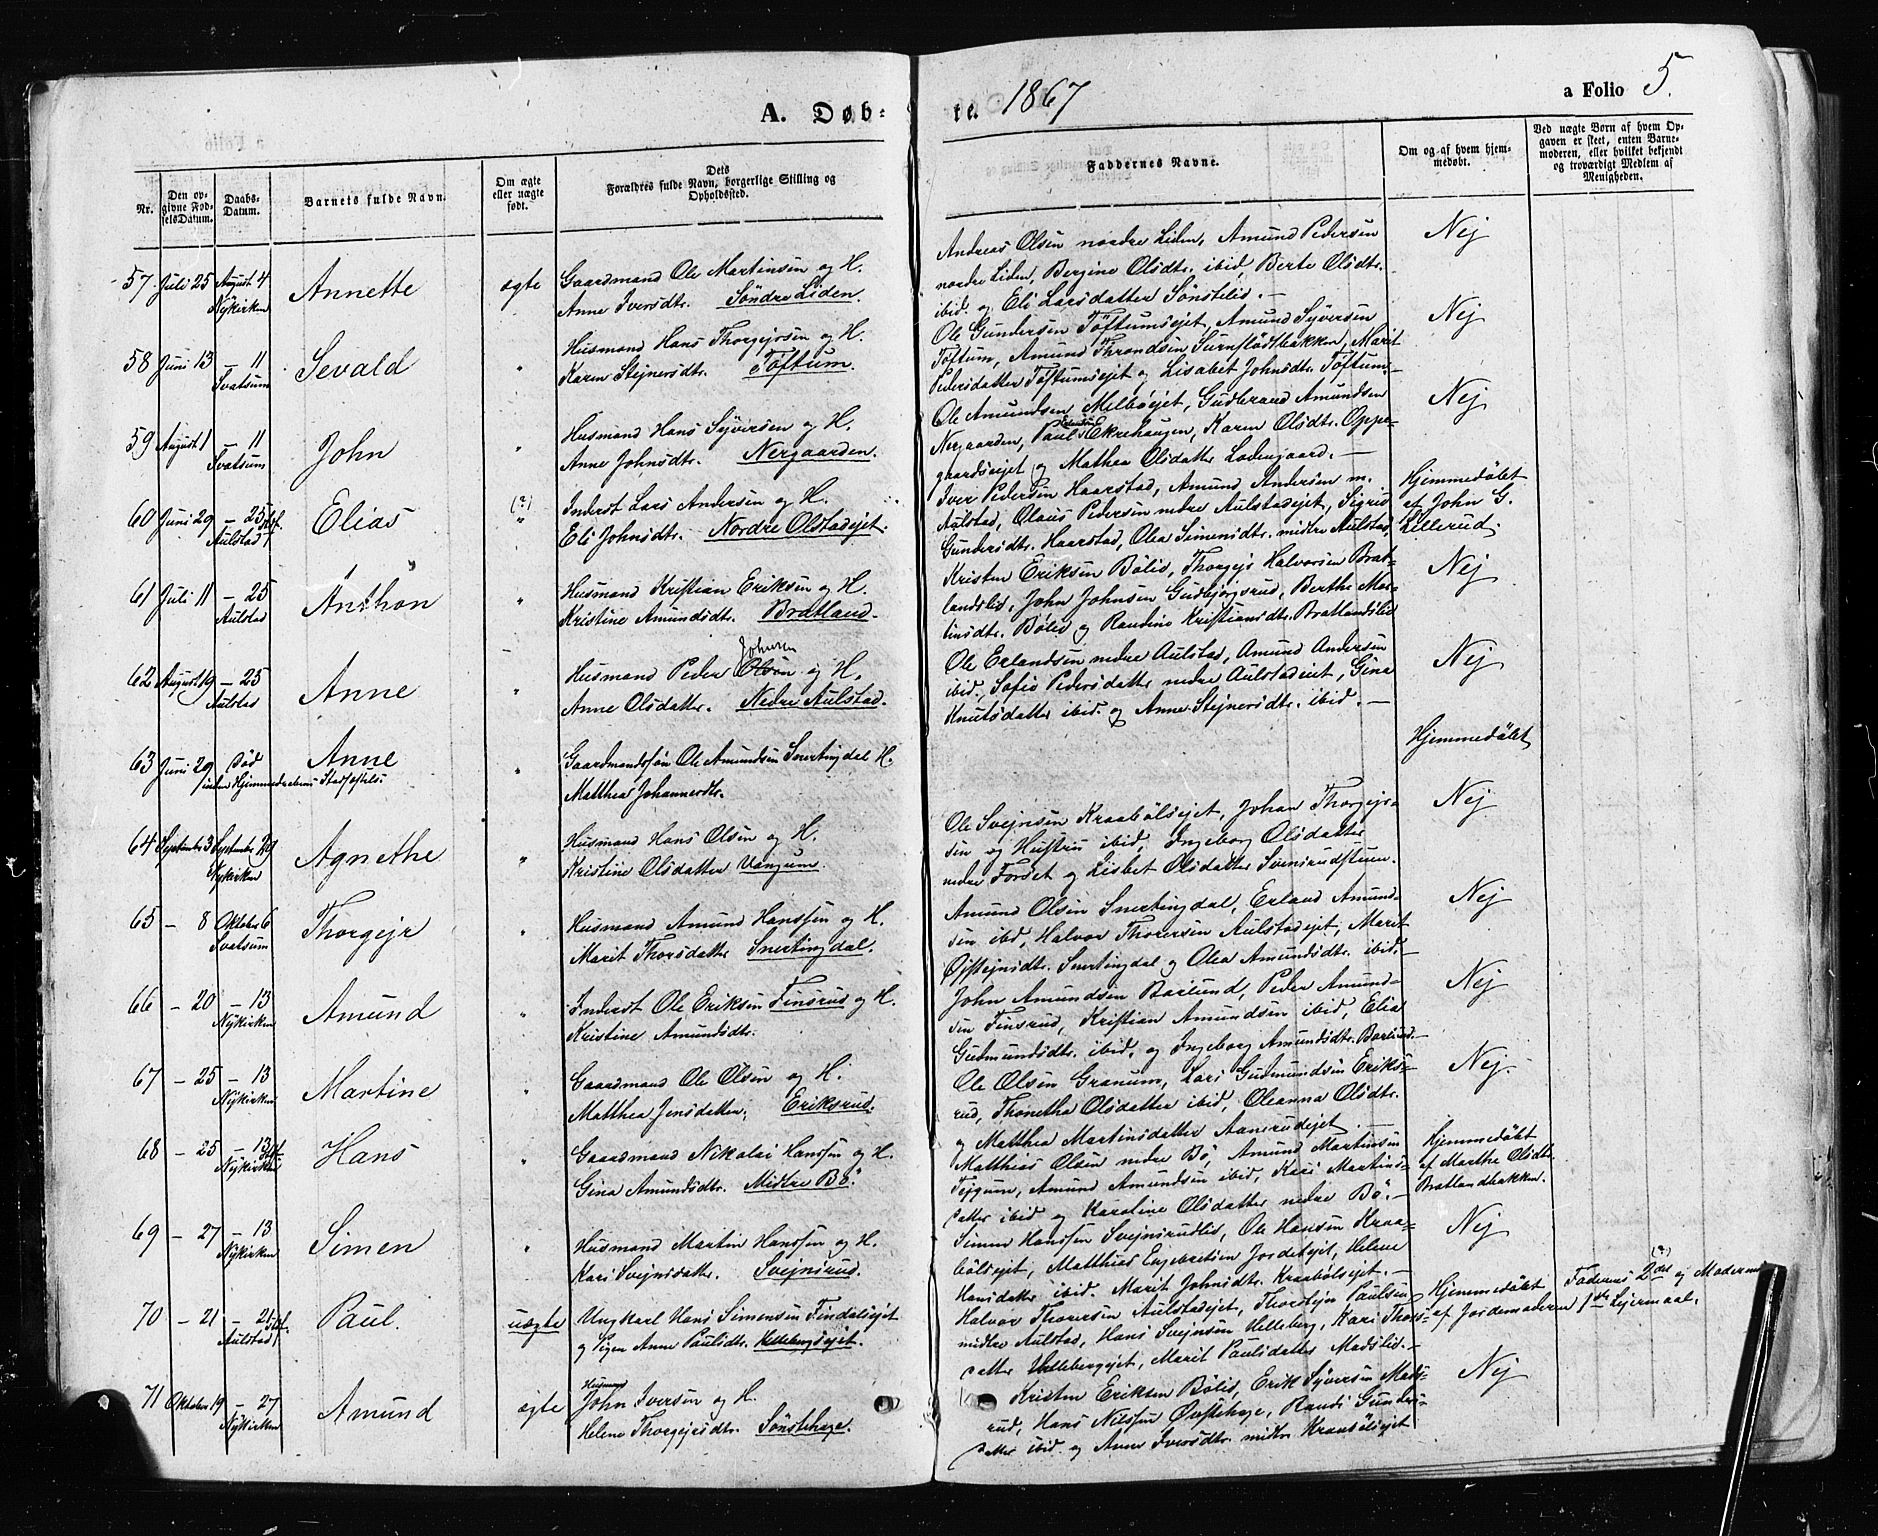 A. Døb-
te. 1867
a Folio 5.
Nr.
Den op-
givne Fød-
selsDatum.
Daabs-
Datum.
Barnets fulde Navn.
Om ægte
eller uægte
født.
Dets
Forældres fulde Navn, borgerlige Stilling og
Opholdssted.
Faddernes Navne.
Om og af hvem hjem-
medøbt.
Ved uægte Børn af hvem Op-
gaven er skeet, enten Barne-
moderen, eller hvilket bekjendt
og troværdigt Medlem af
Menigheden.
57 Juli 25 August 4 Nykirken Annette ægte
Gaardmand Ole Martinsen og H.
Anne Iversdtr. Søndre Liden.
Andreas Olsen nordre Liden, Amund Pedersen
nordre Liden, Bergine Olsdtr. ibid, Berte Olsdtr.
ibid. og Eli Larsdatter Sønstelid. —
Nej
58 Juni 13 — 11 Svatsum Sevald "
Husmand Hans Thorgejrsen og H.
Karen Stejnersdtr. Töftum.
Ole Gundersen Töftumsejet, Amund Syversen
Töftum, Amund Throndsen Surnflodbakken, Marit
Pedersdatter Töftumsejet og Lisabet Johnsdtr. Töftum.
Nej
59 August 1 — 11 Svatsum John "
Husmand Hans Syversen og H.
Anne Johnsdtr. Nergaarden.
Ole Amundsen Melbøejet, Gudbrand Amundsen
Nergaarden, Paul Økrehaugen, Karen Olsdtr. Oppe-
gaardsejet og Mathea Olsdatter Ladengaard. —
Nej
60 Juni 29 — 25 Stf. Aulstad Elias (?) "
Inderst Lars Andersen og H.
Eli Johnsdtr. Nordre Olstadejet.
Iver Pedersen Haarstad, Amund Andersen m.
Aulstad, Olaus Pedersen nedre Aulstadejet, Sigrid
Gundersdtr. Haarstad, Olea Simensdtr. midtre Aulstad.
Hjemmedøbt
af John G.
Lillerud.
61 Juli 11 — 25 Aulstad Anthon "
Husmand Kristian Eriksen og H.
Kristine Amundsdtr. Bratland.
Kristen Eriksen Bölid, Thorgejs Halvorsen Brat-
landslid, John Johnsen Gudbjørgsrud, Berthe Mar-
tinsdtr. Bölid og Randine Kristiansdtr. Bratlandslid
Nej
62 August 19 — 25 Aulstad Anne "
Johnsen
Husmand Peder Olsen og H.
Anne Olsdatter. Nedre Aulstad.
Ole Erlandsen nedre Aulstad, Amund Andersen
ibid., Sofie Pedersdatter nedre Aulstadejet, Gina
Knutsdatter ibid. og Anne Stejnersdtr. ibid. —
Nej
63 Juni 29 Død Anne "
inden Hjemmedaabens Stadfæstelse
Gaardmandssøn Ole Amundsen Snertingdal H.
Matthea Johannesdtr.
Hjemmedøbt
64 September 3 September 29 Nykirken Agnethe "
Husmand Hans Olsen og H.
Kristine Olsdatter Vangum.
Ole Svejnsen Kraabölsejet, Johan Thorgejs-
sen og Hustru ibid, Ingeborg Olsdatter
nedre Forset og Lisbet Olsdatter Svensrudstuen.
Nej
65 — 8 Oktober 6 Svatsum Thorgejr "
Husmand Amund Hanssen og H.
Marit Thorsdatter Snertingdal.
Amund Olsen Snertingdal, Erland Amund-
sen ibd, Halvor Thorersen Aulstadejet, Marit
Øjstejnsdtr. Snertingdal og Olea Amundsdtr. ibid. —
Nej
66 — 20 — 13 Nykirken Amund "
Inderst Ole Eriksen Finsrud og H.
Kristine Amundsdtr.
John Amundsen Baslund, Peder Amund-
sen Finsrud, Kristian Amundsen ibid, Elia
Gudmundsdtr. ibid, og Ingeborg Amundsdtr. Baslund. —
Nej
67 — 25 — 13 Nykirken Martine "
Gaardmand Ole Olsen og H.
Matthea Jensdatter. Eriksrud.
Ole Olsen Granum, Lars Gudmundsen Eriks-
rud, Thonetha Olsdatter ibid, Oleanna Olsdtr.
og Matthea Martinsdatter Aanerudejet. —
Nej.
68 — 25 — 13 Stf. Nykirken Hans "
Gaardmand Nikolai Hanssen og H.
Gina Amundsdtr. Midtre Bö.
Matthias Olsen nedre Bö, Amund Martinsen
Tejgum, Amund Amundsen ibid, Kari Martins-
datter ibid og Karoline Olsdatter nedre Bö. —
Hjemmedøbt
af Marthe Olsdtr.
Bratlandbakken.
69 — 27 — 13 Nykirken Simen "
Husmand Martin Hanssen og H.
Kari Svejnsdatter. Svejnsrud.
Simen Hanssen Svejnsrudlid, Ole Hansen Kraa-
bölsejet, Matthias Engebretsen Jordetejet, Helene
Hansdatter ibid. Marit Johnsdtr. Kraabölsejet. —
Nej
70 — 21 — 21 Stf. Aulstad Paul. uægte
Ungkarl Hans Simensen Findalsejet
og Pigen Anne Paulsdtr. Hellebergsejet.
Halvor Thorersen Aulstadejet, Thorstejn Paulsen
midtre Aulstad, Hans Svejnsen Helleberg, Kari Thors-
datter Hellebergejet, Marit Paulsdatter Madslid. —
Hjemmedøbt
af Jordemoderen
(?)
Faderens 2det og Moderens
1ste Lejermaal.
71 Oktober 19 — 27 Nykirken Amund ægte
Husmand
John Iversen og H.
Helene Thorgejrsdtr. Sönstehage.
Kristen Eriksen Bölid, Erik Syversen Mads-
rud, Hans Nilssen Øvstehage, Randi Gunders-
datter ibid. og Anne Iversdtr. midtre Kraabölsejet
Nej